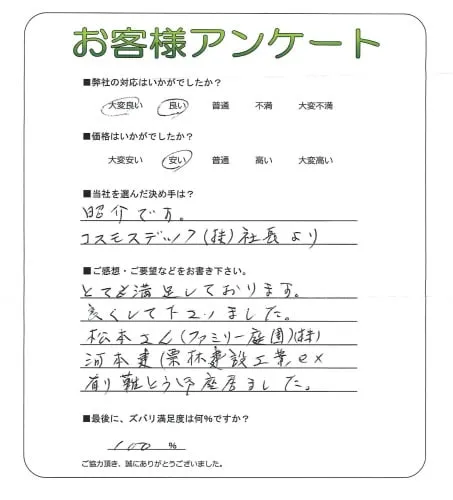 お客様アンケート
■弊社の対応はいかがでしたか?
大変良い 良い 普通 不満 大変不満
■価格はいかがでしたか?
大変安い 安い 普通 高い 大変高い
■当社を選んだ決め手は?
昭介です。
コスモスデック(株)社長より
■ご感想・ご要望などをお書き下さい。
とても満足しております。
良くして下さいました。
松本さん(ファミリー庭園)(株)
河本建(栗林建設工業
有り難とう御座居ました。
■最後に、ズバリ満足度は何%ですか?
100 %
ご協力頂き、誠にありがとうございました。